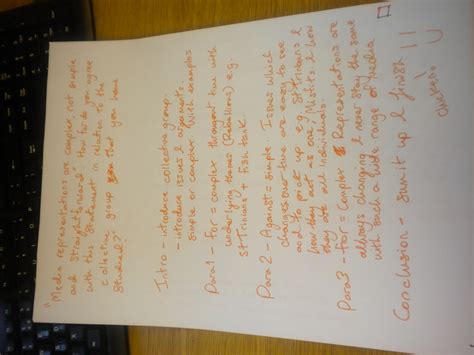 "Media representations are complex, not simple
and straightforward". How far do you agree
with this statement in relation to the
collective group that you have
studied?"
Intro - introduce collective group.
- introduce issues & arguments.
simple or complex (with examples
Para 1 - For = complex throughout time with
underlying issues (Rebellions) e.g.
St Trinians + Fish tank.
Para 2 - Against = Simple. Issues which
changes over time are easy to see
and to pick up e.g. St Trinians &
how they act as one / Misfits & how
they are all individuals.
Para 3 - For = Complex Representations are
always changing & never stay the same
with such a wide range of media.
Conclusion - sum it up & finish!!